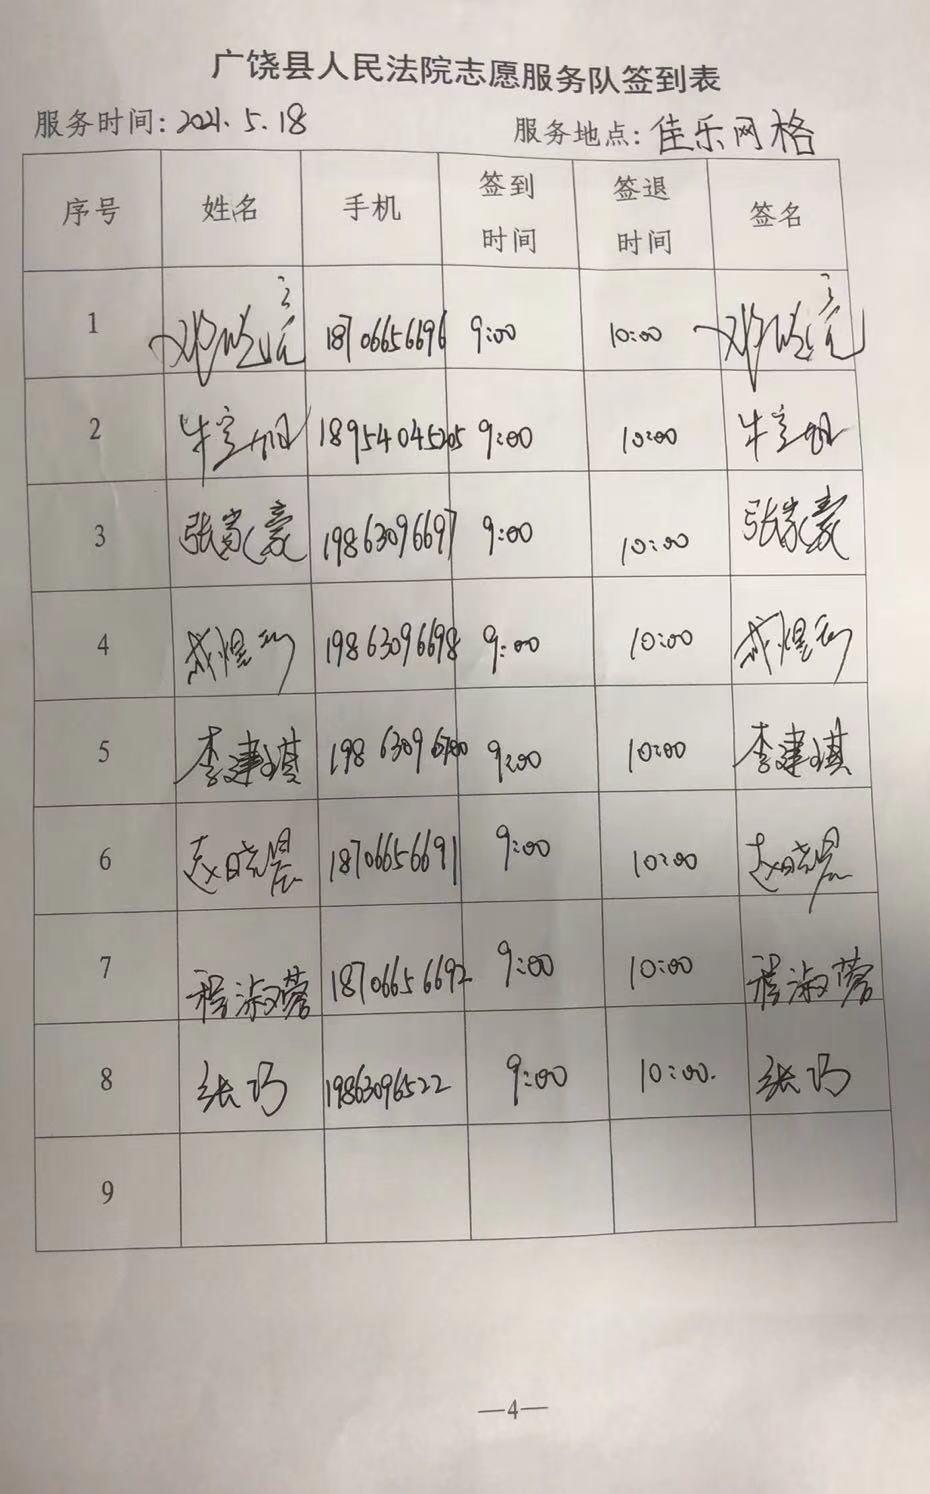 广饶县人民法院志愿服务队签到表
服务时间: 2021.5.18 服务地点: 佳乐网格
序号 姓名 手机 签到时间 签退时间 签名
1 18706656696 9:00 10:00
2 18954045205 9:00 10:00
3 张家豪 19863096697 9:00 10:00 张家豪
4 19863096698 9:00 10:00
5 李建琪 19863096700 9:00 10:00 李建琪
6 赵晓晨 18706656691 9:00 10:00 赵晓晨
7 程淑蓉 18706656692 9:00 10:00 程淑蓉
8 张巧 19863096522 9:00 10:00. 张巧
9
—4—